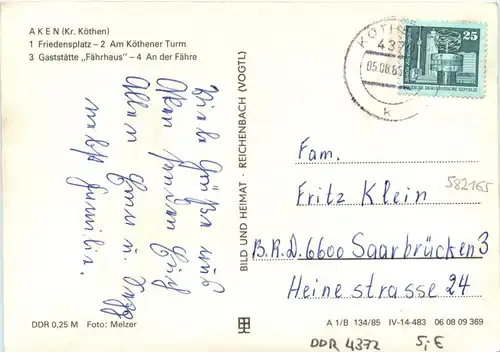 AKEN (Kr. Köthen)
1 Friedensplatz – 2 Am Köthener Turm
3 Gaststätte „Fährhaus" – 4 An der Fähre
KÖTHEN
437
05.08.85
k
25
DEUTSCHE DEMOKRATISCHE REPUBLIK
Viele Grüße aus
Aken senden Euch
Allen
nebst Familie.
BILD UND HEIMAT · REICHENBACH (VOGTL)
Fam.
Fritz Klein
582165
B.R.D. 6600 Saarbrücken 3
Heinestrasse 24
DDR 0,25 M Foto: Melzer
A 1/B 134/85 IV-14-483 06 08 09 369
DDR 4372 5,-€